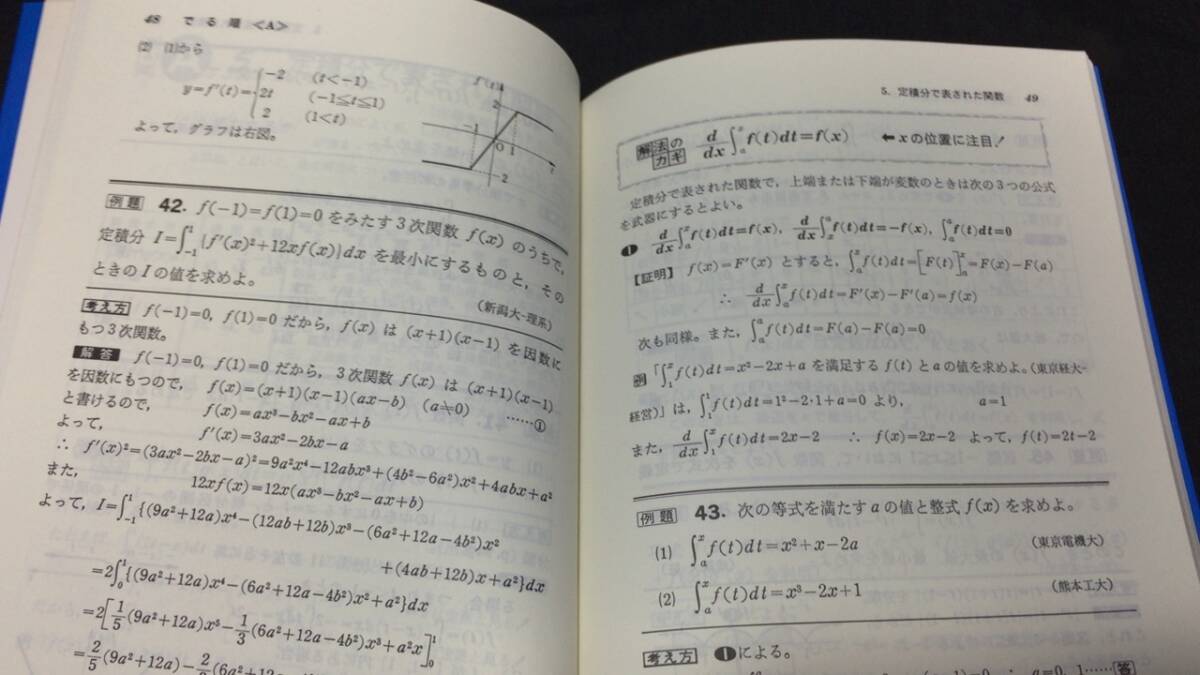 48 でる順〈A〉
(2) (1)から
y=f′(t)={−2 (t<−1)
2t (−1≦t≦1)
2 (1<t)
よって，グラフは右図。
2
−1
0 1
−2
例題 42. f(−1)=f(1)=0 をみたす3次関数 f(x) のうちで，
定積分 I=∫_{-1}^{1}{f′(x)²+12xf(x)}dx を最小にするものと，その
ときの I の値を求めよ。
(新潟大-理系)
考え方 f(−1)=0, f(1)=0 だから，f(x) は (x+1)(x−1) を因数に
もつ3次関数。
解答 f(−1)=0, f(1)=0 だから，3次関数 f(x) は (x+1)(x−1)
を因数にもつので，
f(x)=(x+1)(x−1)(ax−b) (a≠0) ……①
と書けるので，
f(x)=ax³−bx²−ax+b
よって，
f′(x)=3ax²−2bx−a
∴ f′(x)²=(3ax²−2bx−a)²=9a²x⁴−12abx³+(4b²−6a²)x²+4abx+a²
また，
12xf(x)=12x(ax³−bx²−ax+b)
よって，I=∫_{-1}^{1}{(9a²+12a)x⁴−(12ab+12b)x³−(6a²+12a−4b²)x²
+(4ab+12b)x+a²}dx
=2∫_{0}^{1}{(9a²+12a)x⁴−(6a²+12a−4b²)x²+a²}dx
=2[1/5(9a²+12a)x⁵−1/3(6a²+12a−4b²)x³+a²x]_{0}^{1}
=2/5(9a²+12a)−2/3(6a²+12a
5. 定積分で表された関数 49
解法のカギ d/dx∫_{a}^{x}f(t)dt=f(x) ←xの位置に注目！
定積分で表された関数で，上端または下端が変数のときは次の3つの公式
を武器にするとよい。
❶ d/dx∫_{a}^{x}f(t)dt=f(x)，d/dx∫_{x}^{a}f(t)dt=−f(x)，∫_{a}^{a}f(t)dt=0
【証明】 f(x)=F′(x) とすると，∫_{a}^{x}f(t)dt=[F(t)]_{a}^{x}=F(x)−F(a)
∴ d/dx∫_{a}^{x}f(t)dt=F′(x)−F′(a)=f(x)
次も同様。また，∫_{a}^{a}f(t)dt=F(a)−F(a)=0
例 「∫_{1}^{x}f(t)dt=x²−2x+a を満足する f(t) と a の値を求めよ。(東京経大-
経営)」は，∫_{1}^{1}f(t)dt=1²−2·1+a=0 より， a=1
また，d/dx∫_{1}^{x}f(t)dt=2x−2 ∴ f(x)=2x−2 よって，f(t)=2t−2
例題 43. 次の等式を満たす a の値と整式 f(x) を求めよ。
(1) ∫_{a}^{x}f(t)dt=x²+x−2a (東京電機大)
(2) ∫_{a}^{x}f(t)dt=x³−2x+1 (熊本工大)
考え方 ❶による。
=0 ∴ a=0, 1……答